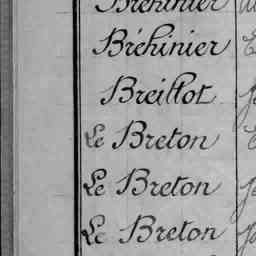 Bréhinier
Bréhinier
Breillot
Le Breton
Le Breton
Le Breton